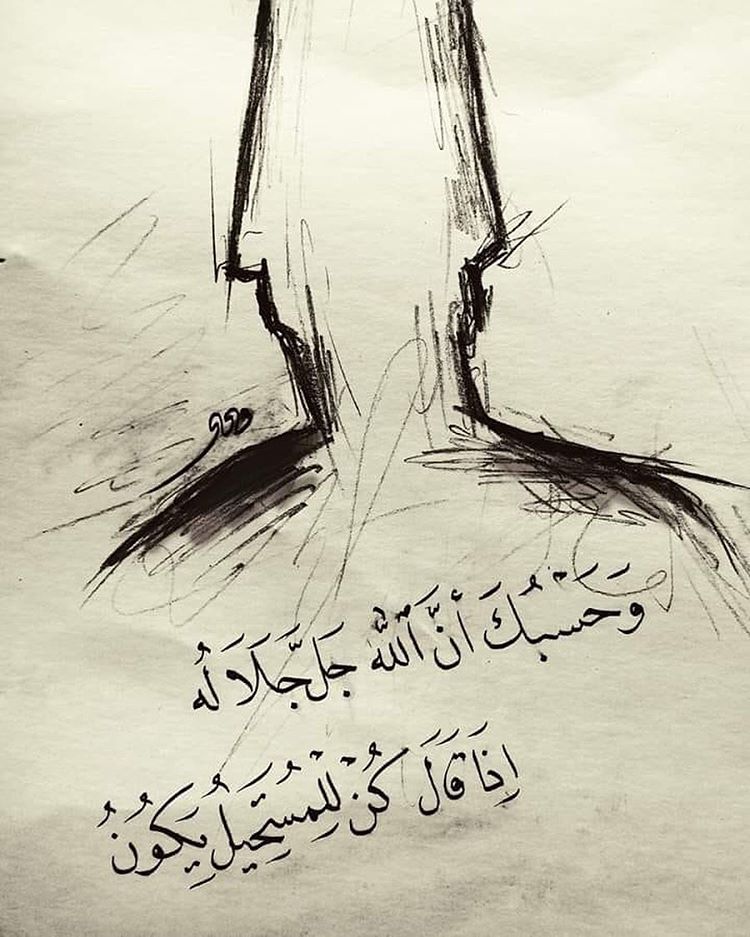 وَحَسْبُكَ أَنَّ ٱللَّهَ جَلَّ جَلَالُهُ
إِذَا قَالَ كُنْ لِلْمُسْتَحِيلِ يَكُونُ